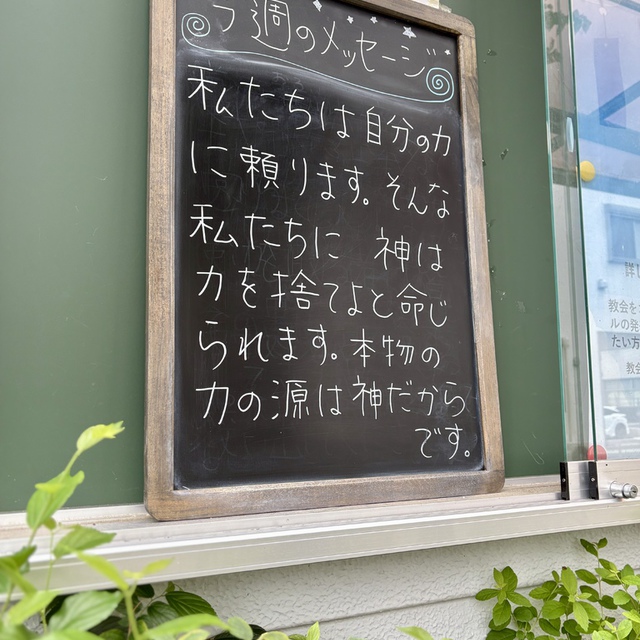 週のメッセージ
私たちは自分の力
に頼ります。そんな
私たちに 神は
力を捨てよと命じ
られます。本物の
力の源は神だから
です。
教会を
ルの発
たい方
教会